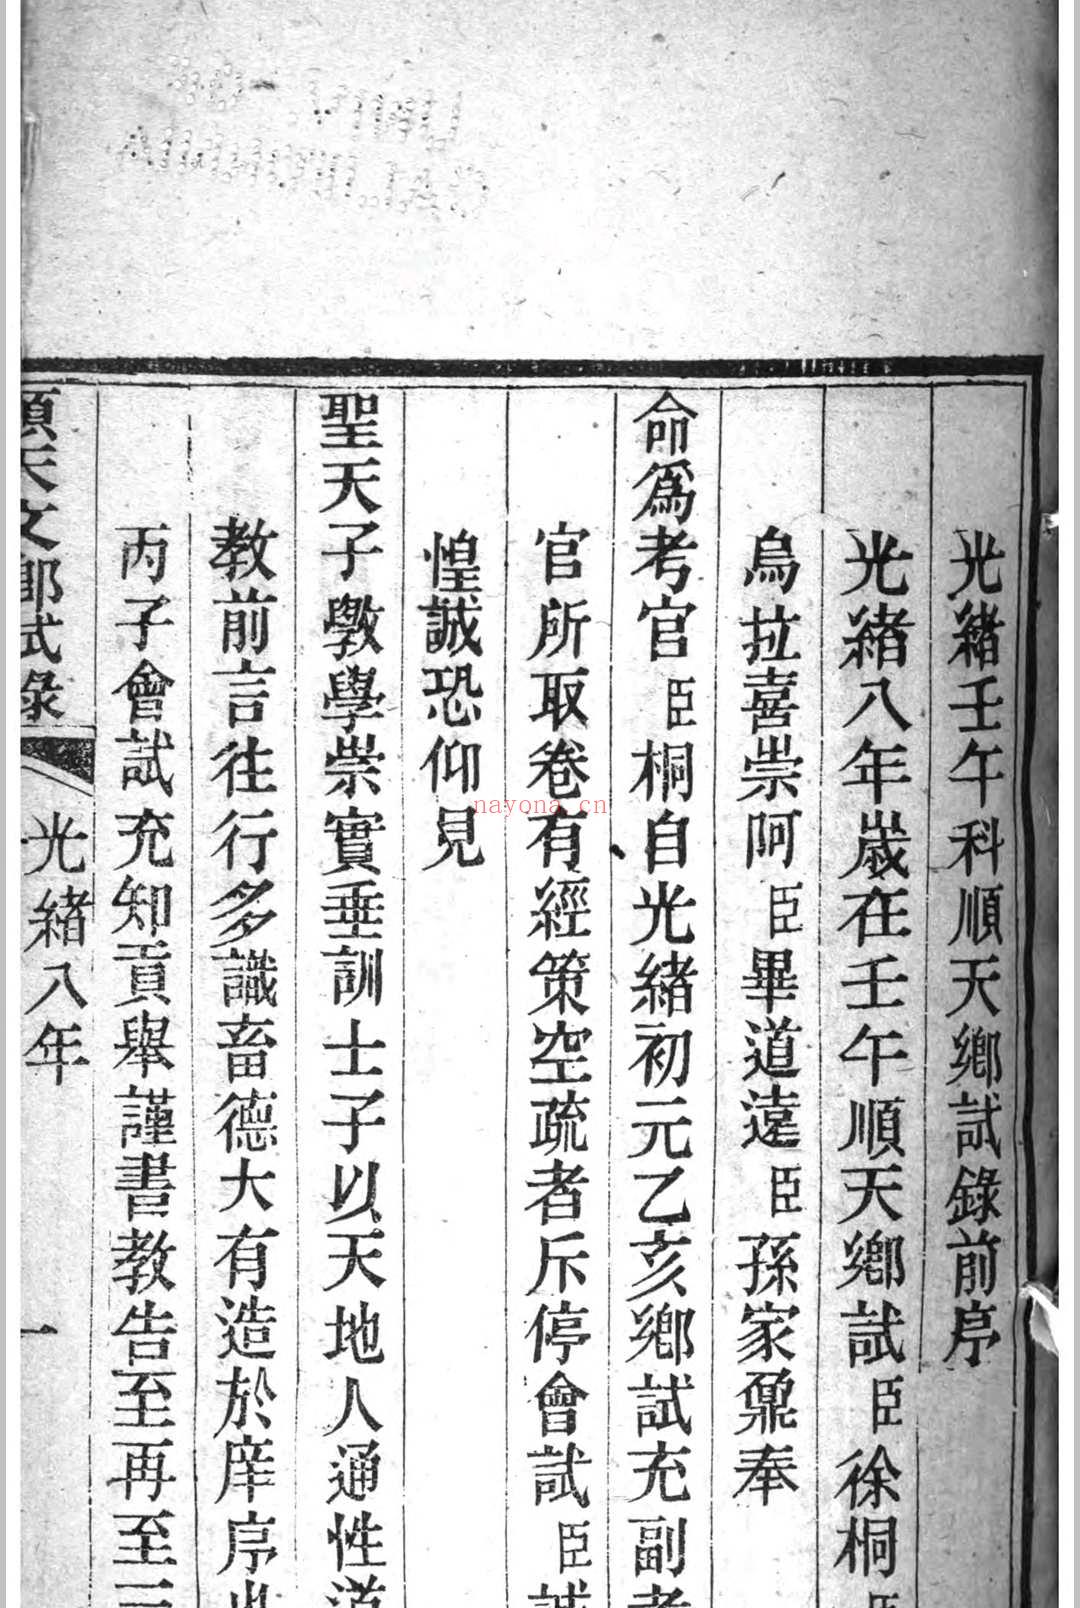 光緒壬午科順天鄉試錄前序
光緒八年歲在壬午順天鄉試臣徐桐臣
烏拉喜崇阿臣畢道遠臣孫家鼐奉
命爲考官臣桐自光緒初元乙亥鄉試充副考
官所取卷有經策空疏者斥停會試臣誠
惶誠恐仰見
聖天子斆學崇實垂訓士子以天地人通性道
教前言往行多識畜德大有造於庠序此
丙子會試充知貢舉謹書教告至再至三
順天文鄉試錄
光緒八年
一
nayona.cn
UNIV. OF
CALIFORNIA